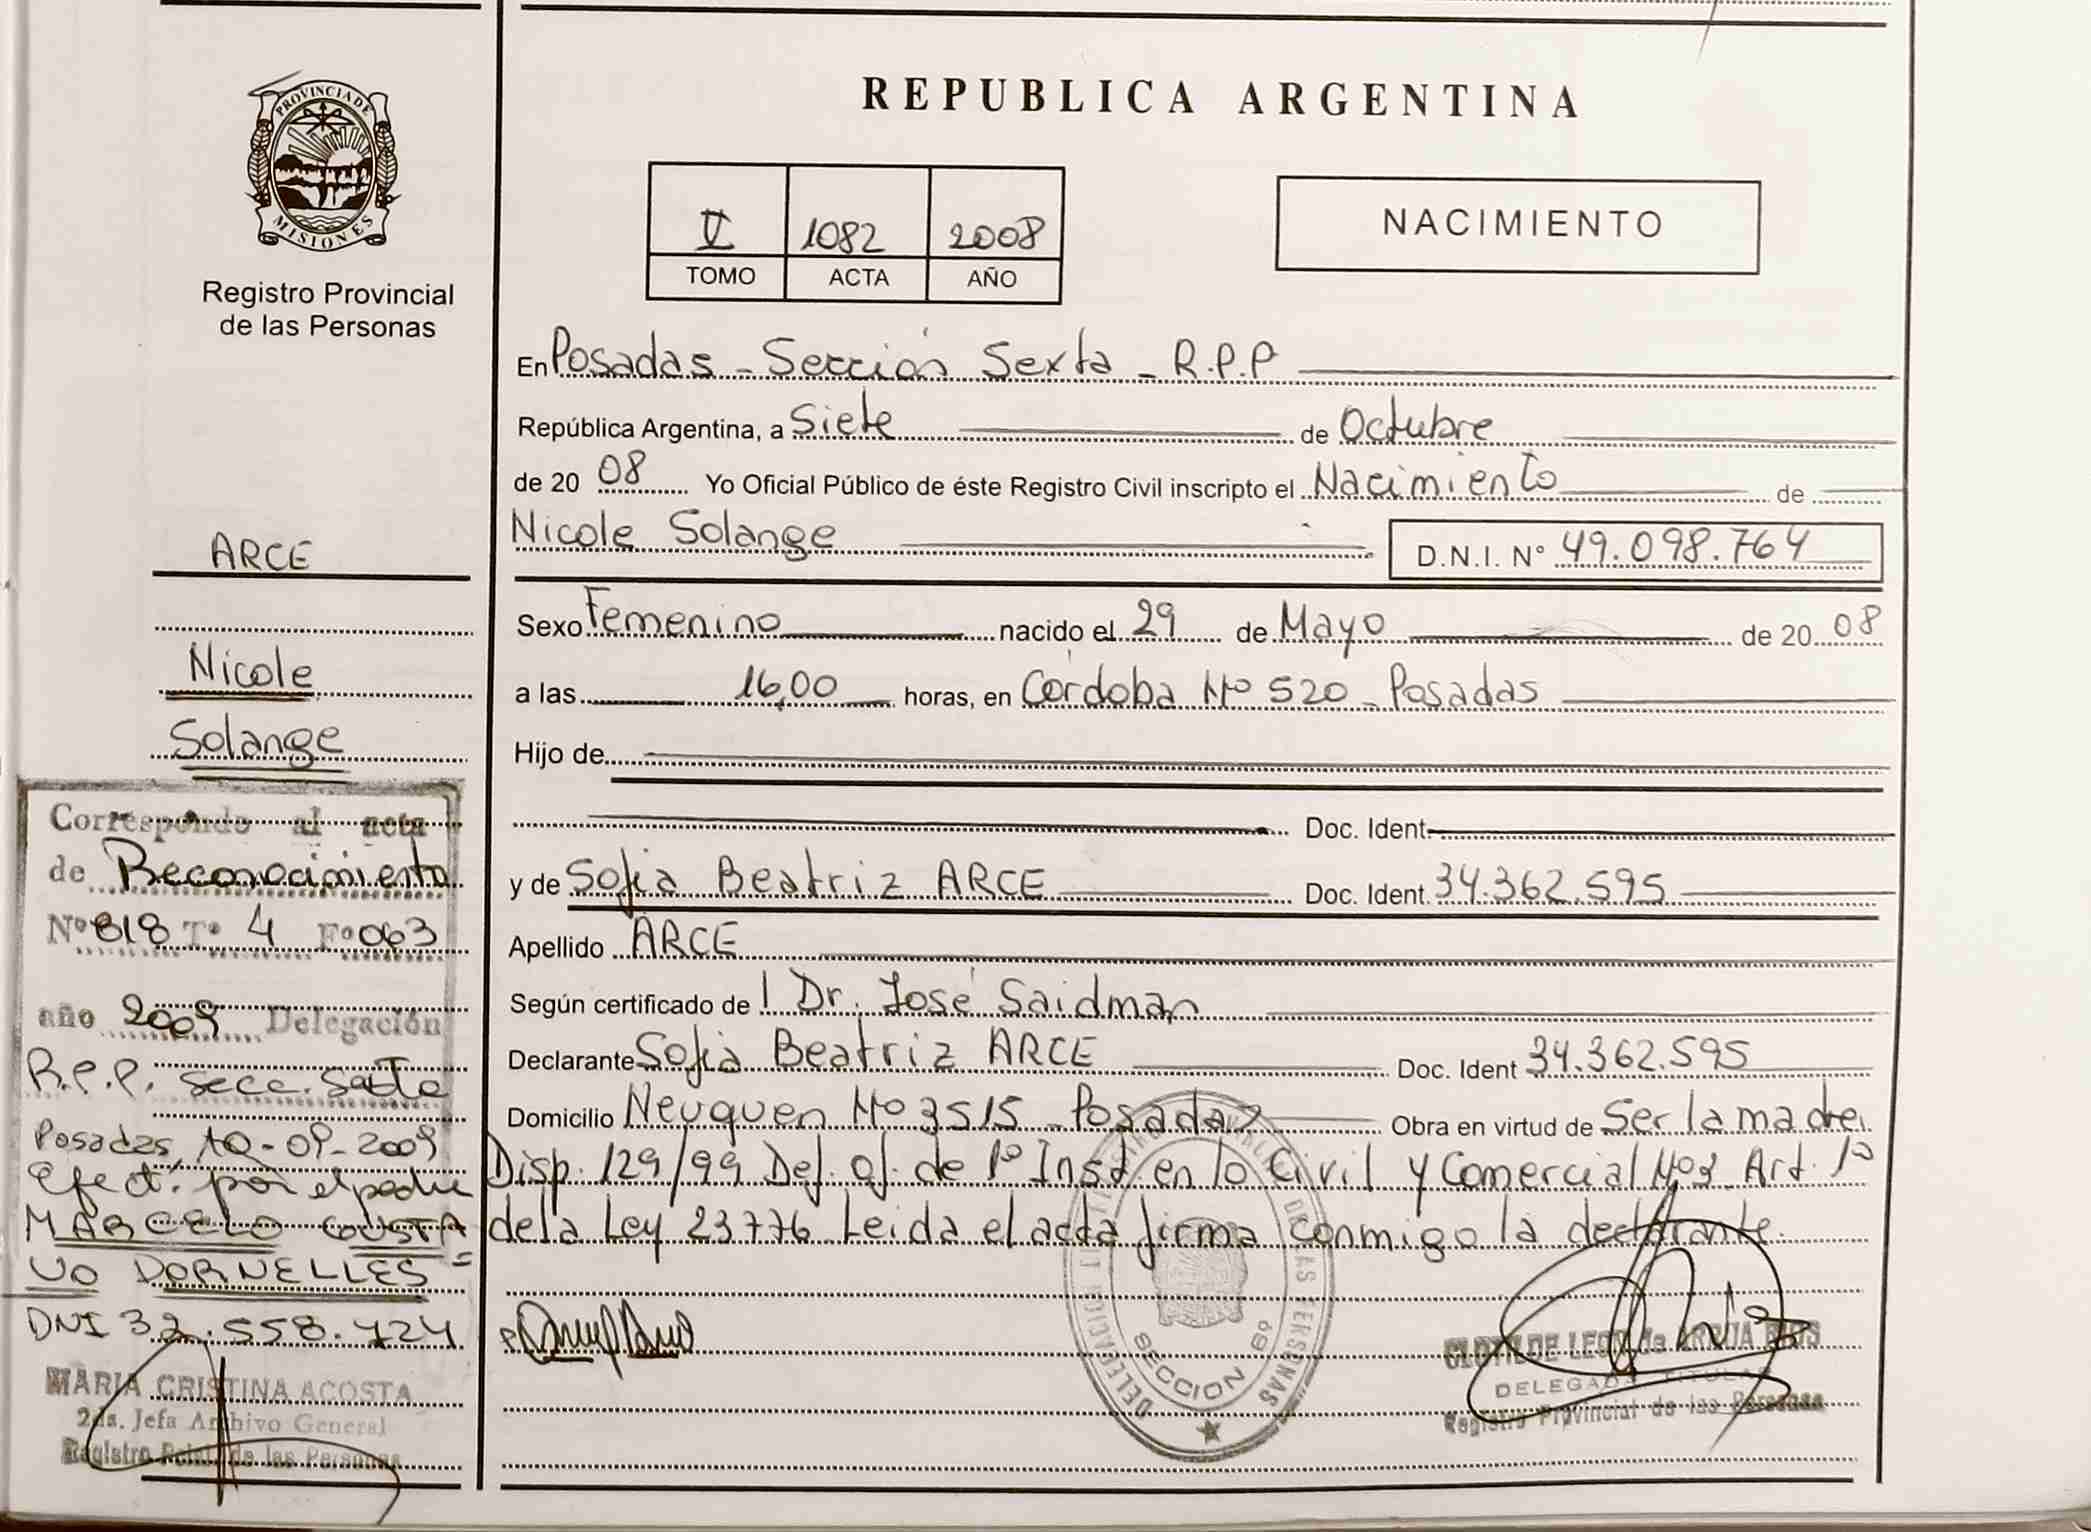 REPUBLICA ARGENTINA
PROVINCIA DE
MISIONES
Registro Provincial
de las Personas
V 1082 2008
TOMO ACTA AÑO
NACIMIENTO
En Posadas - Sección Sexta - R.P.P
República Argentina, a Siete de Octubre
de 20 08 Yo Oficial Público de éste Registro Civil inscripto el Nacimiento de
Nicole Solange D.N.I. Nº 49.098.764
Sexo Femenino nacido el 29 de Mayo de 20 08
a las 16,00 horas, en Córdoba Nº 520 - Posadas
Hijo de
Doc. Ident
y de Sofia Beatriz ARCE Doc. Ident. 34.362.595
Apellido ARCE
Según certificado de Dr. José Saidman
Declarante Sofia Beatriz ARCE Doc. Ident 34.362.595
Domicilio Neuquen Nº 3515 - Posadas Obra en virtud de Ser la madre.
Disp. 129/99 Def. of. de 1º Inst. en lo Civil y Comercial Nº3 Art. 1º
de la Ley 23776 Leida el acta firma conmigo la declarante.
ARCE
Nicole
Solange
Corresponde al acta
de Reconocimiento
Nº 818 Tº 4 Fº 063
año 2009 Delegación
R.P.P. Secc. Sexta
Posadas, 10-09-2009
Efect. por el padre
MARCELO GUSTA
VO DORNELLES
DNI 32.558.724
MARIA CRISTINA ACOSTA
2da. Jefa Archivo General
Registro de las Personas
DE LAS PERSONAS
SECCION 6º
CLOTILDE LEON de ARRUA
DELEGADA TITULAR
Registro Provincial de las Personas